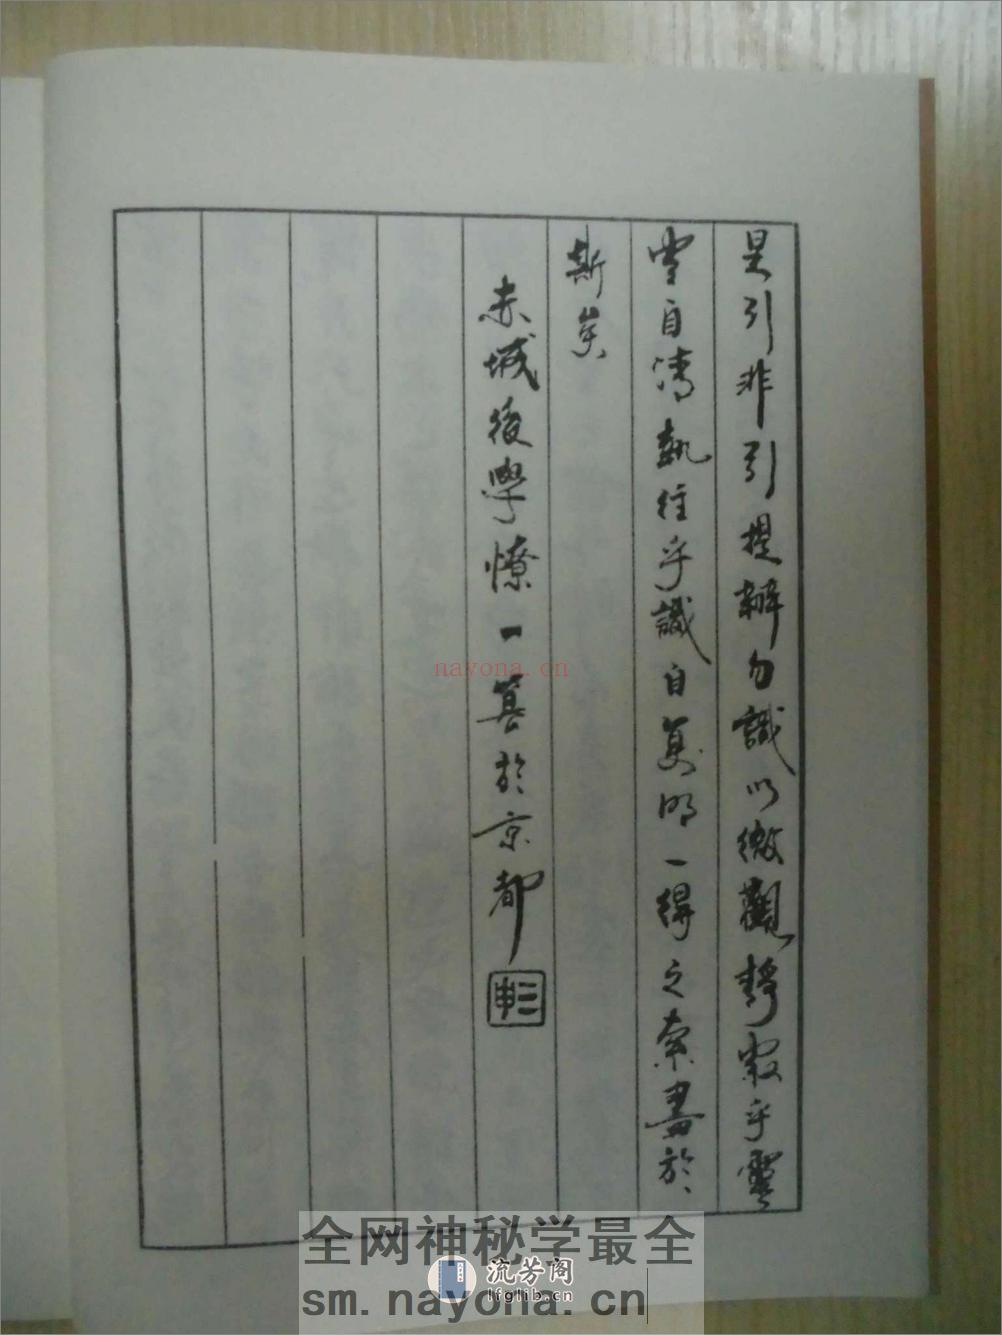 是引非引提辦勿識以微觀靜寂乎靈
靈自清執往乎識自复明一得之索盡於
斯矣
赤城後學憭一算於京都
nayona.cn
全网神秘学最全
流芳阁
lfglib.cn
sm.nayona.cn